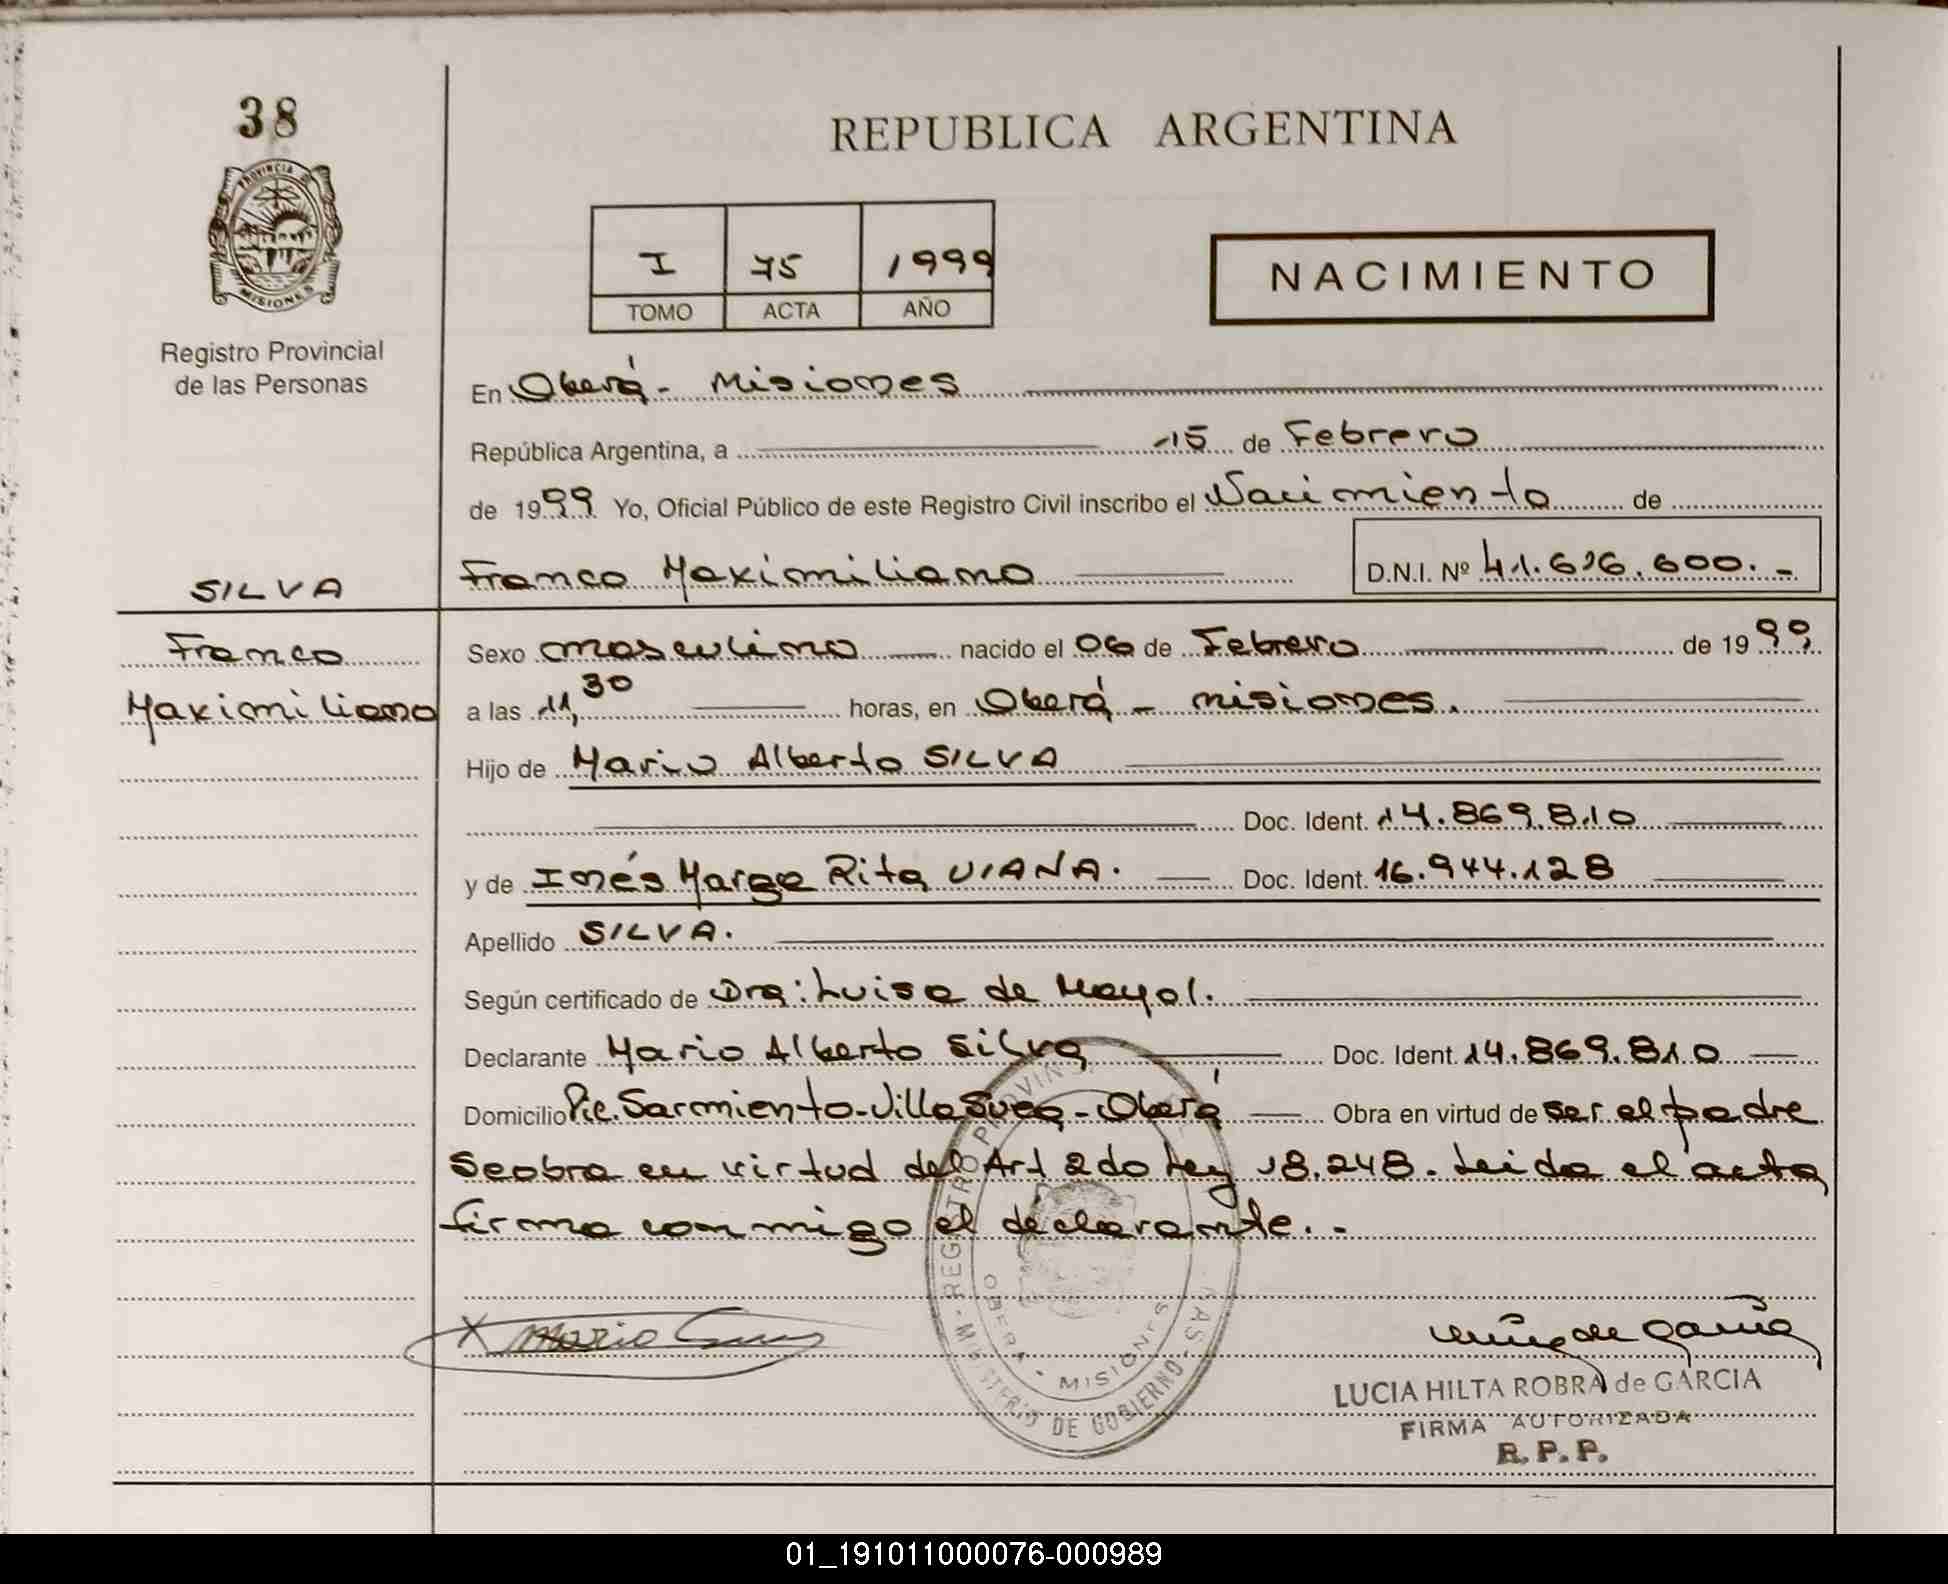 38
PROVINCIA DE
MISIONES
Registro Provincial
de las Personas
REPUBLICA ARGENTINA
I 75 1999
TOMO ACTA AÑO
NACIMIENTO
En Oberá - Misiones
República Argentina, a 15 de Febrero
de 1999 Yo, Oficial Público de este Registro Civil inscribo el Nacimiento de
Franco Maximiliano D.N.I. Nº 41.626.600.-
SILVA
Franco
Maximiliano
Sexo masculino nacido el 06 de Febrero de 1999
a las 11,30 horas, en Oberá - Misiones.
Hijo de Mario Alberto SILVA
Doc. Ident. 14.869.810
y de Inés Marga Rita VIANA. Doc. Ident. 16.944.128
Apellido SILVA.
Según certificado de Dra: Luisa de Mayol.
Declarante Mario Alberto Silva Doc. Ident. 14.869.810
Domicilio Pic. Sarmiento-Villa Svea-Oberá Obra en virtud de ser el padre
Seobra en virtud del Art 2do Ley 18.248. Leida el acta
firma conmigo el declarante. -
X Mario
de García
LUCIA HILTA ROBRA de GARCIA
FIRMA AUTORIZADA
R. P. P.
OBERA - MISIONES
MINISTERIO DE GOBIERNO
01_191011000076-000989